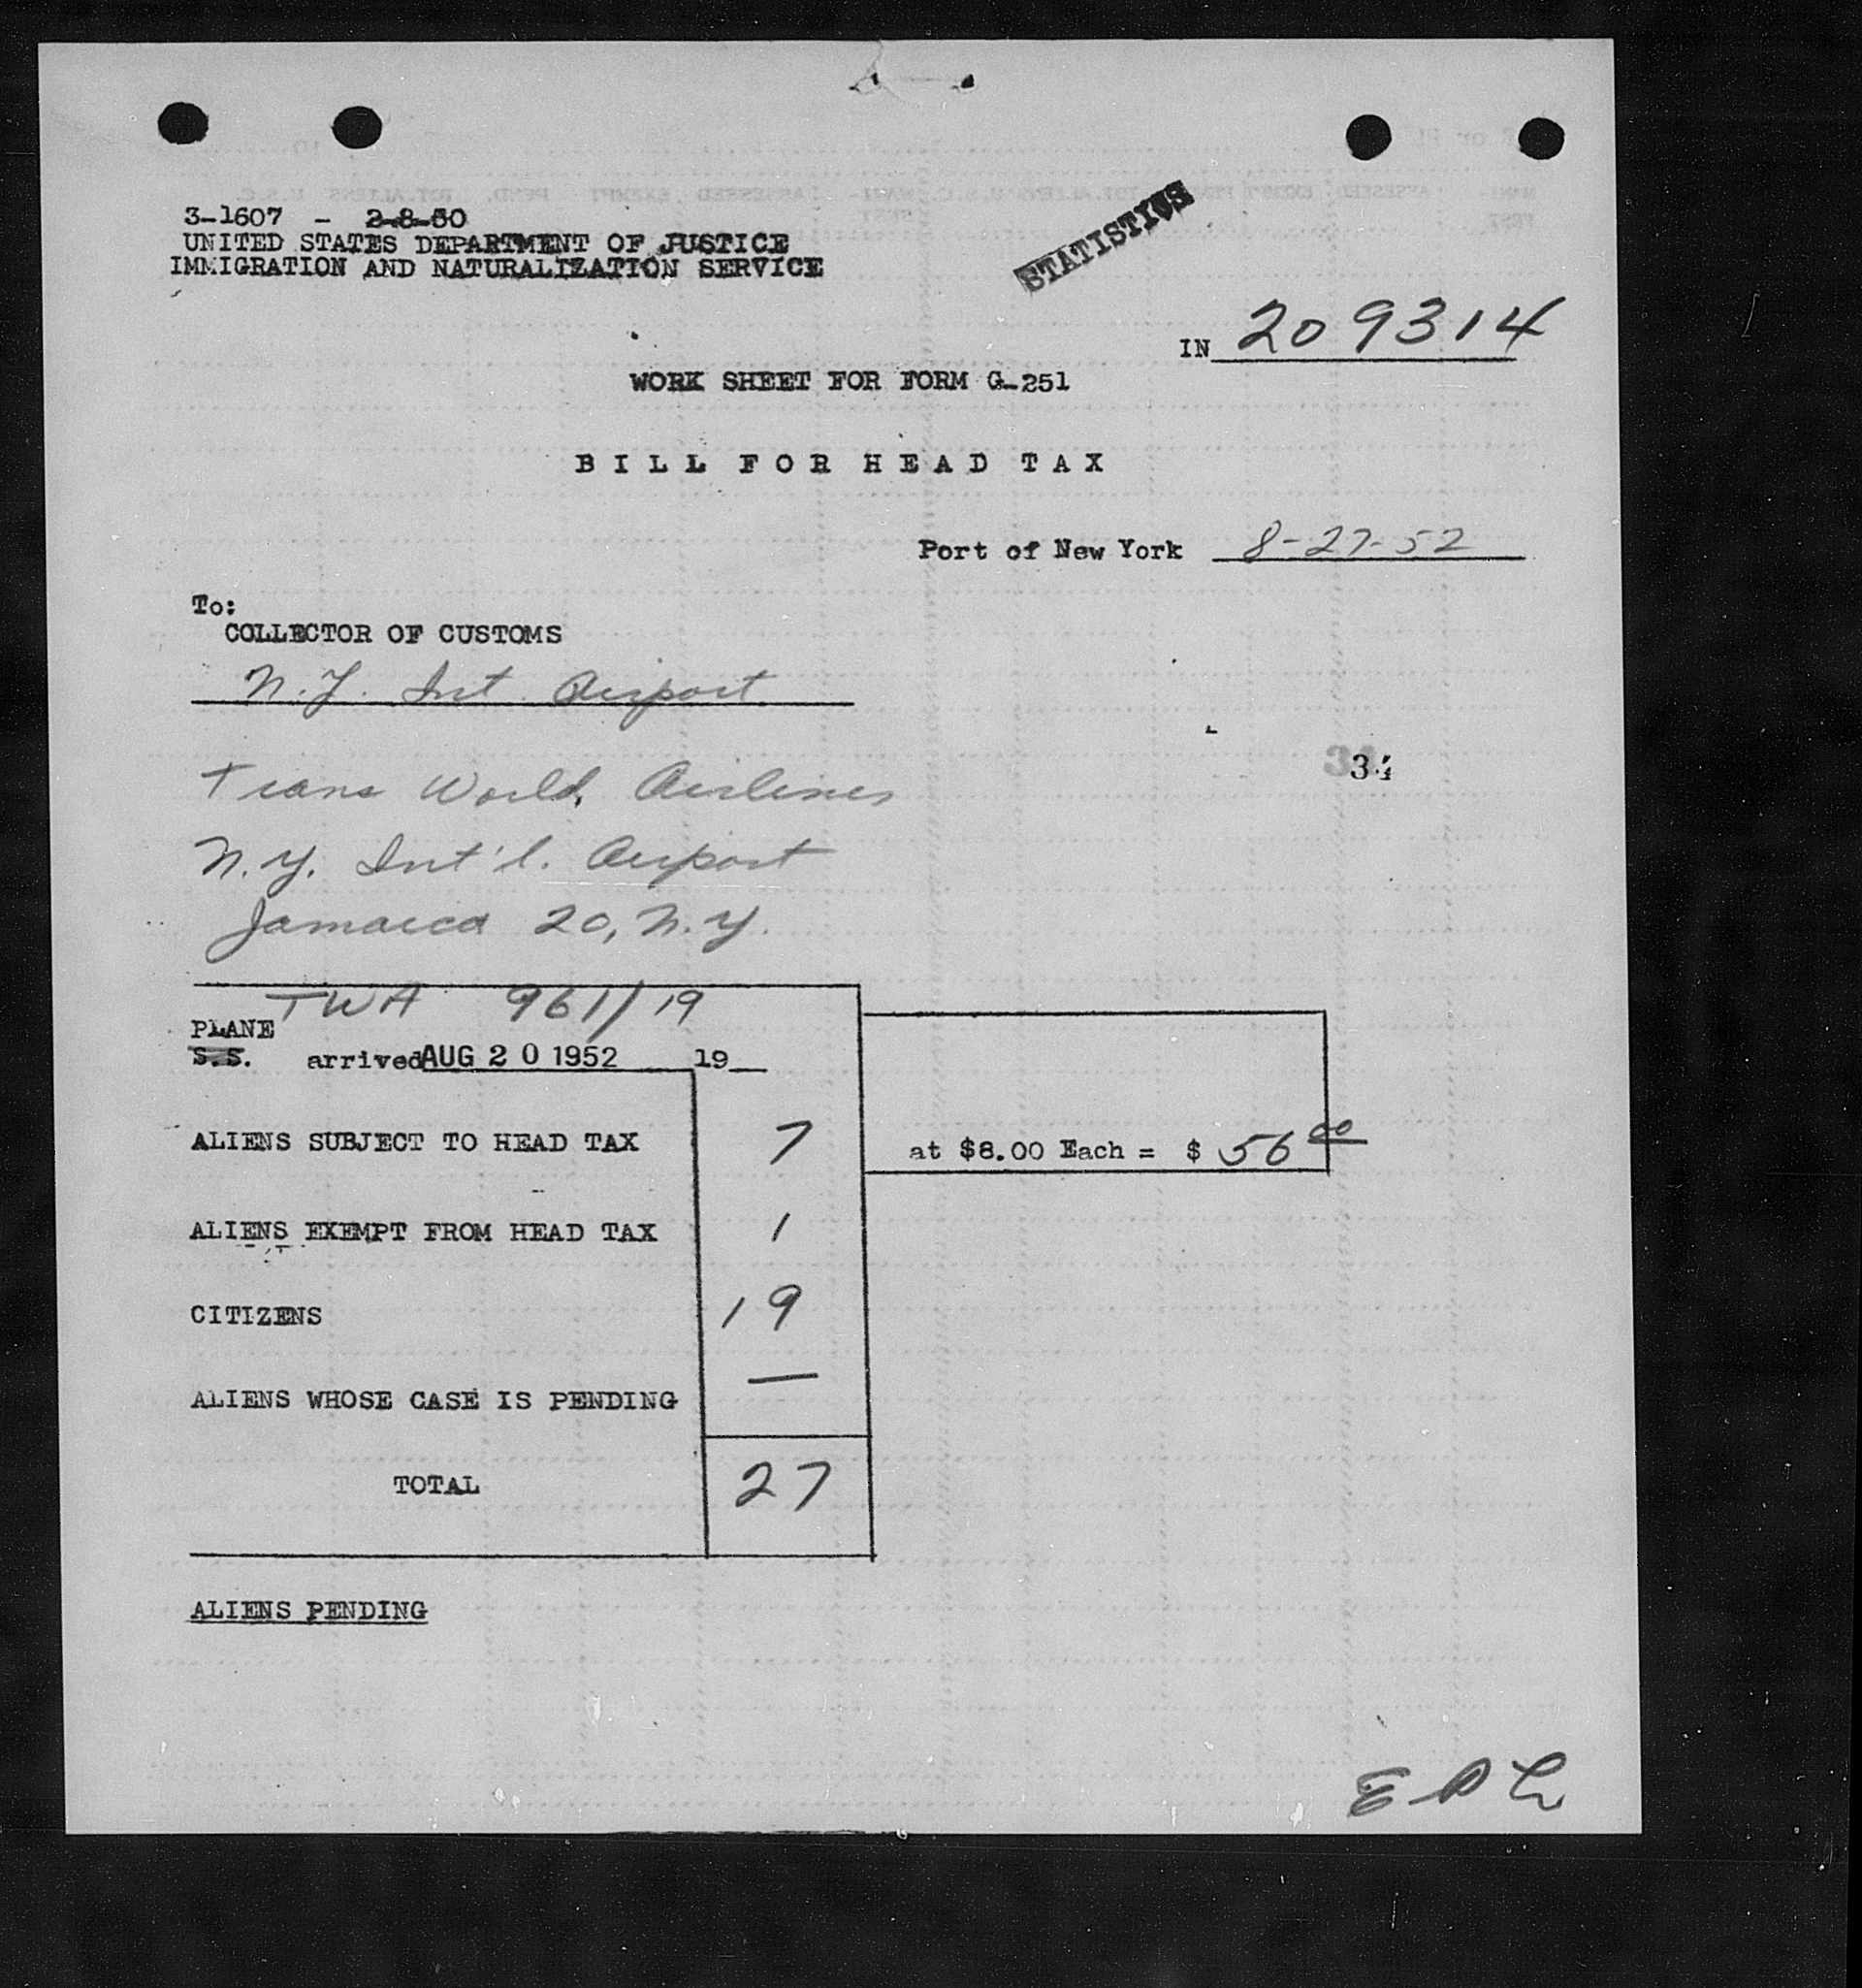 3-1607 - 2-8-50
UNITED STATES DEPARTMENT OF JUSTICE
IMMIGRATION AND NATURALIZATION SERVICE
STATISTICS
IN 209314
WORK SHEET FOR FORM G-251
BILL FOR HEAD TAX
Port of New York 8-27-52
To:
COLLECTOR OF CUSTOMS
N.Y. Int Airport
34
Trans World Airlines
N.Y. Int'l. Airport
Jamaica 20, N.Y.
TWA 961/19
PLANE
S.S. arrived AUG 20 1952 19
ALIENS SUBJECT TO HEAD TAX 7 at $8.00 Each = $ 56 00
ALIENS EXEMPT FROM HEAD TAX 1
CITIZENS 19
ALIENS WHOSE CASE IS PENDING —
TOTAL 27
ALIENS PENDING